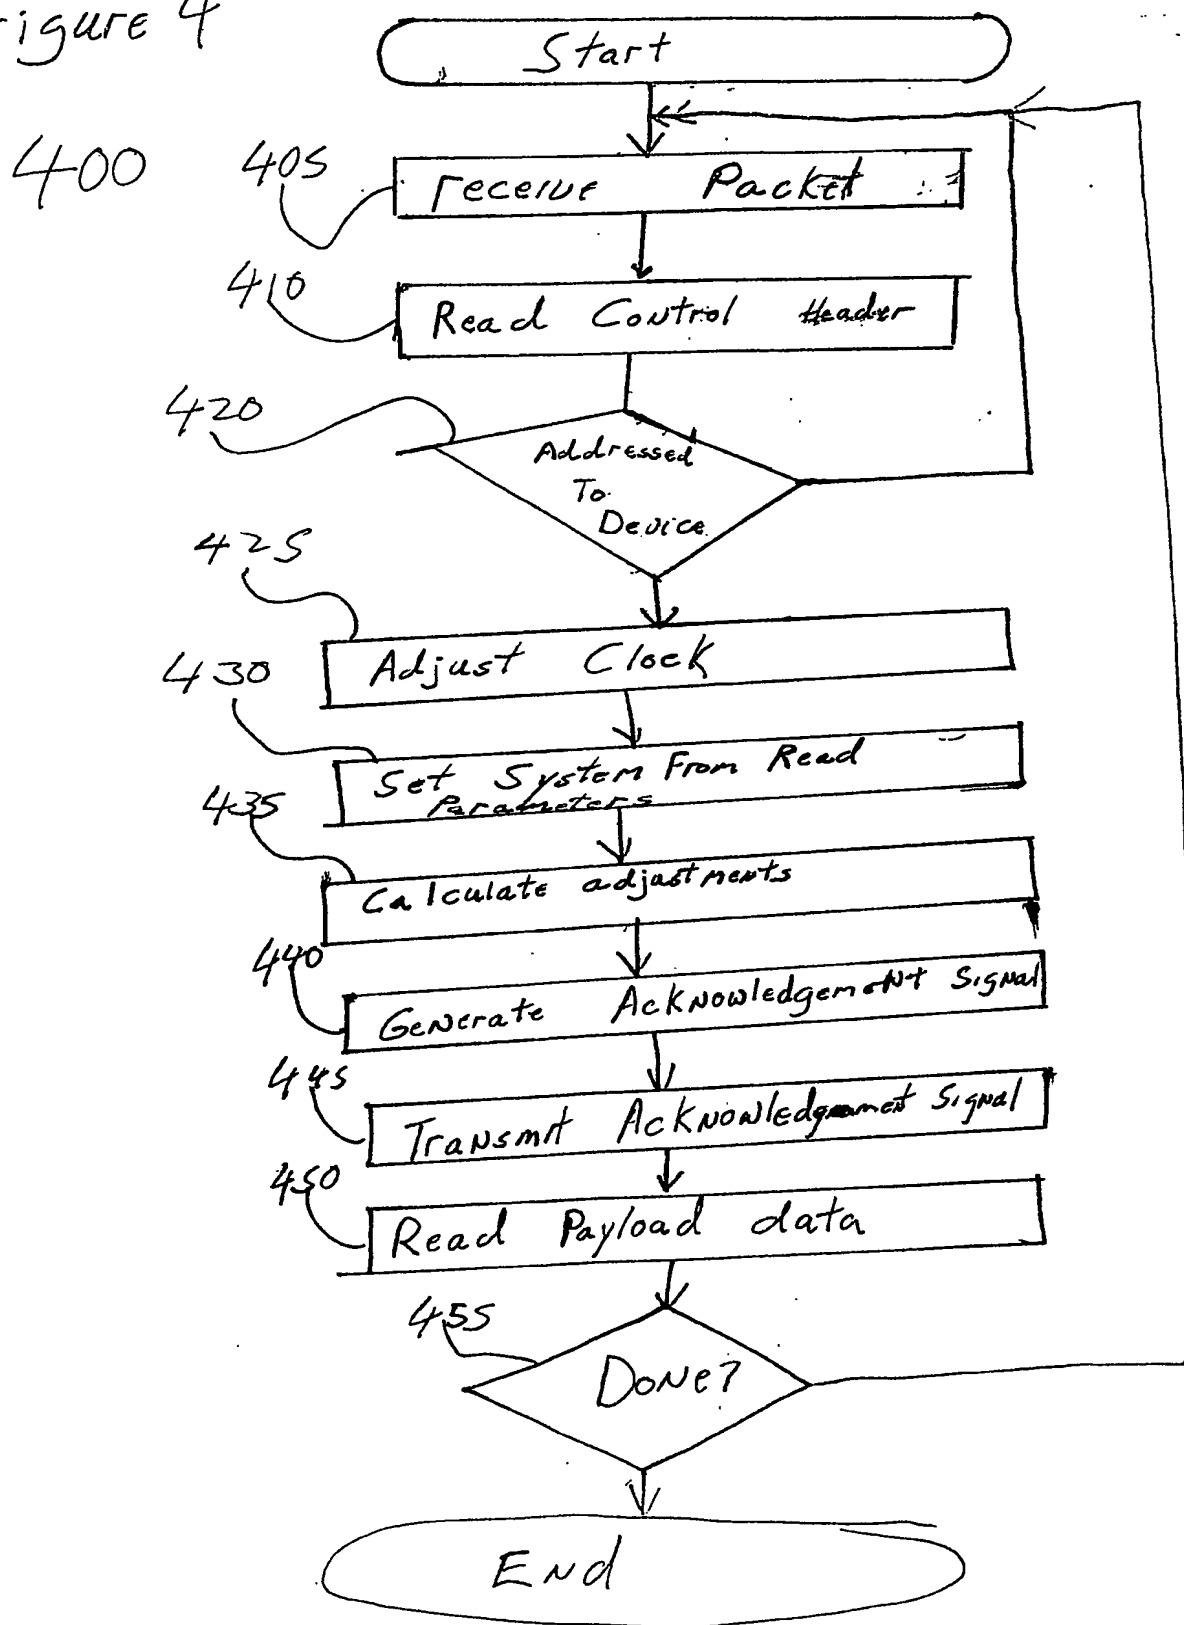 Figure 4
Start
400
405
receive Packet
410
Read Control Header
420
Addressed
To
Device
425
Adjust Clock
430
Set System From Read
Parameters
435
Calculate adjustments
440
Generate Acknowledgement Signal
445
Transmit Acknowledgement Signal
450
Read Payload data
455
Done?
End